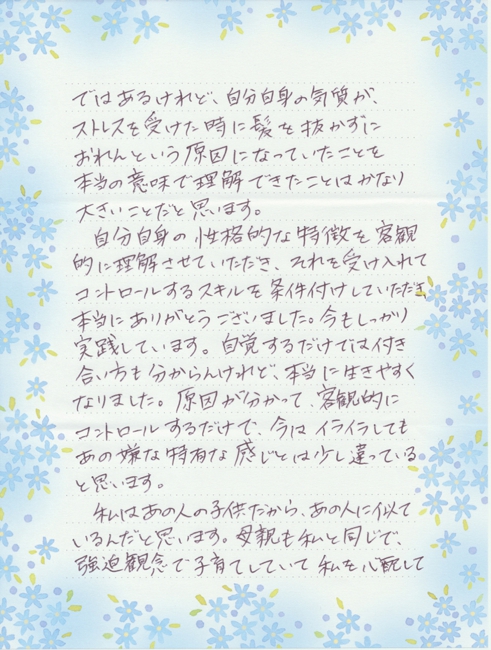 ではあるけれど、自分自身の気質が、
ストレスを受けた時に髪を抜かずに
おれんという原因になっていたことを
本当の意味で理解できたことはかなり
大きいことだと思います。
自分自身の性格的な特徴を客観
的に理解させていただき、それを受け入れて
コントロールするスキルを条件付けしていただき、
本当にありがとうございました。今もしっかり
実践しています。自覚するだけでは付き
合い方も分からんけれど、本当に生きやすく
なりました。原因が分かって、客観的に
コントロールするだけで、今はイライラしても
あの嫌な特有な感じとは少し違っている
と思います。
私はあの人の子供だから、あの人に似て
いるんだと思います。母親も私と同じで、
強迫観念で子育てしていて私を心配して